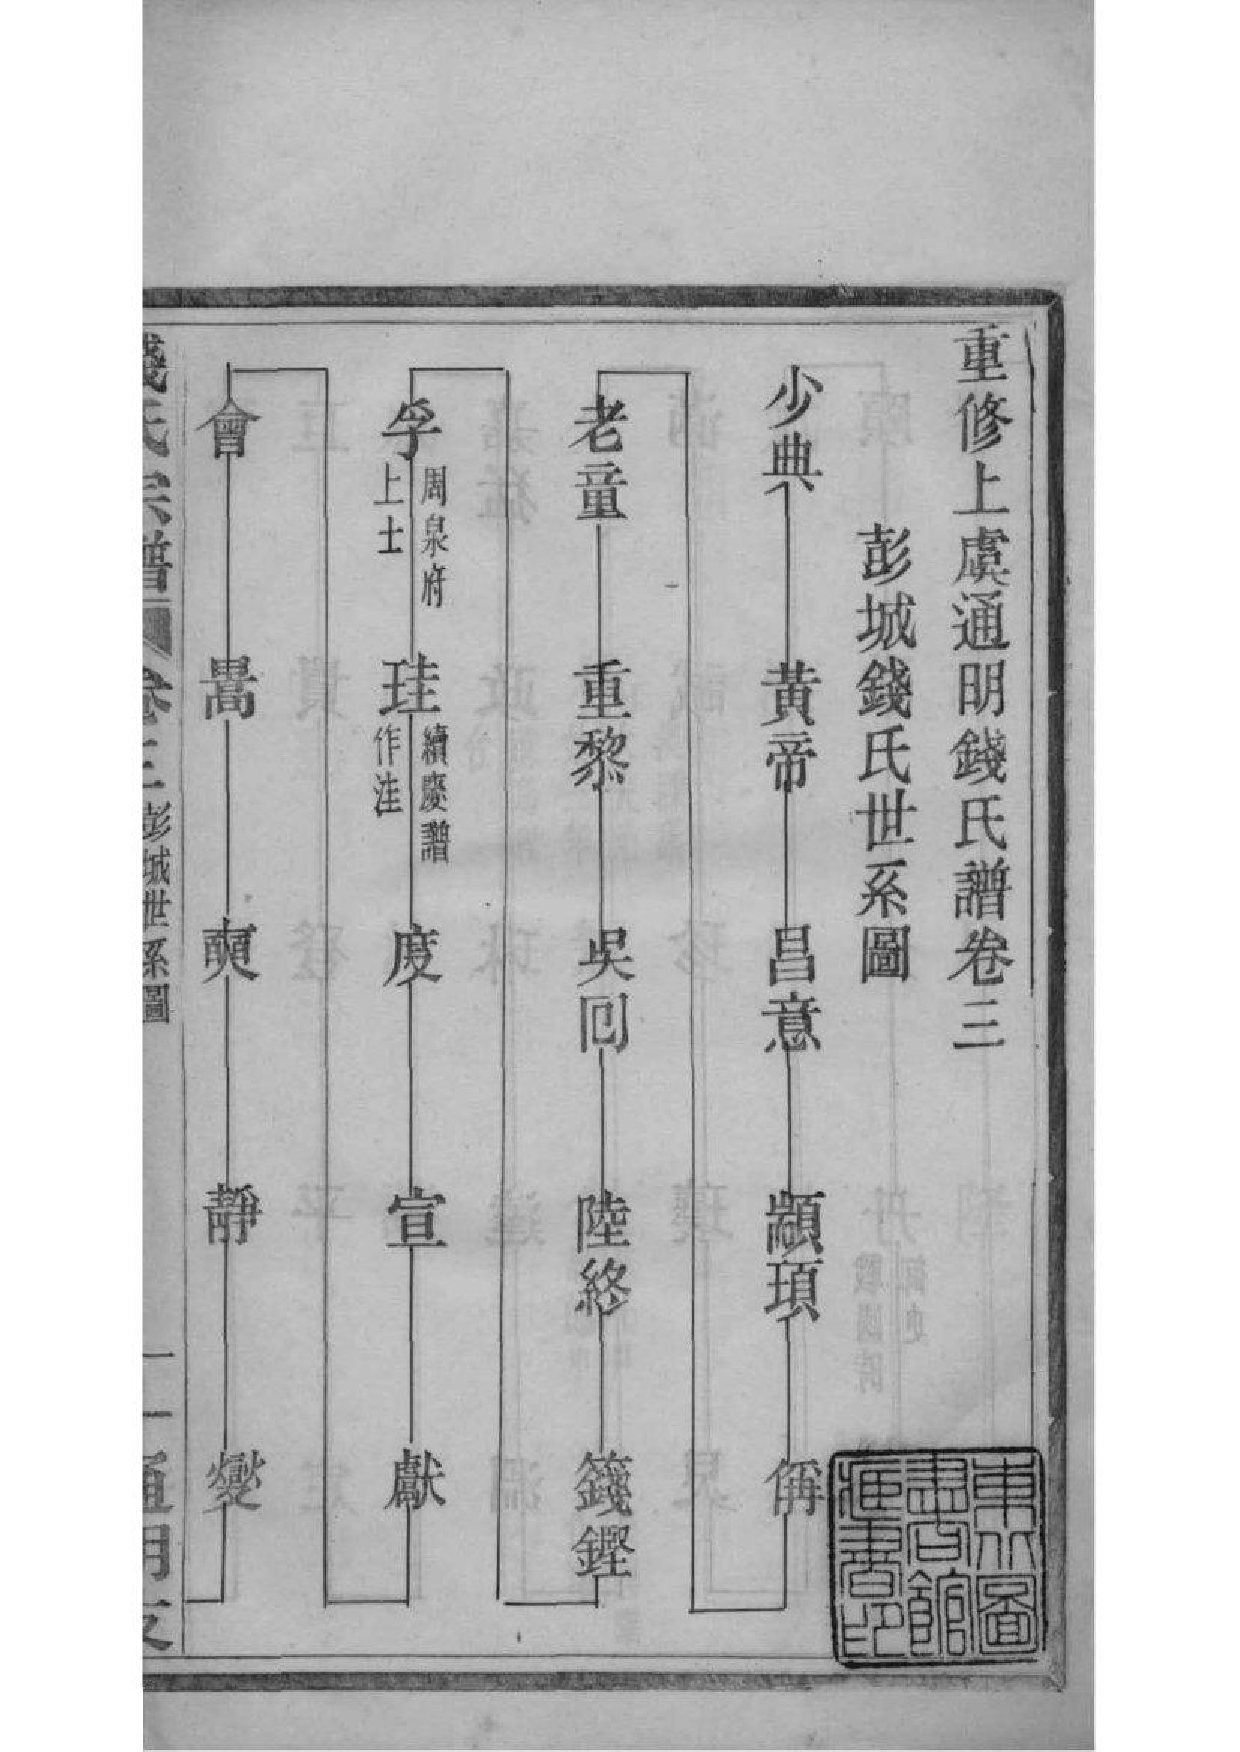 重修上虞通明錢氏譜卷三
彭城錢氏世系圖
少典 黃帝 昌意 顓頊 偁
老童 重黎 吳囘 陸終 籛鏗
孚 周泉府上士 珪 續慶譜作洼 度 宣 獻
會 暠 奭 靜 燮
錢氏宗譜 卷三 彭城世系圖 一 通明支
東北圖書館所藏書印